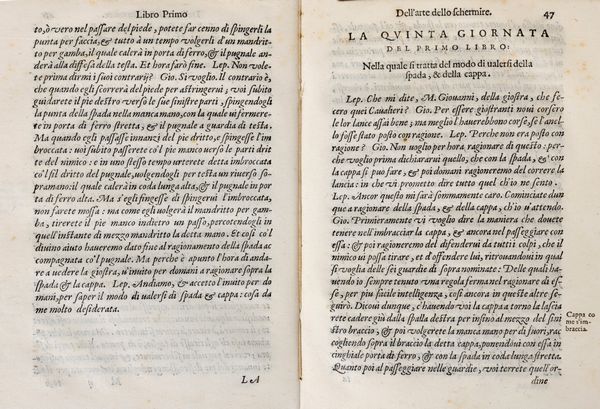 Libro Primo
to, ò vero nel passare del piede, potete far cenno di spingerli la
punta per faccia, & tutto à un tempo volgerli d'un mandritto
per gamba, il quale calerà in porta di ferro, & il pugnale an
derà alla diffesa della testa. Et hora farò fine. Lep. Non vole
te prima dirmi i suoi contrarij? Gio. Si voglio. Il contrario è,
che quando egli scorrerà del piede per astringerui, voi subito
guidarete il pie destro verso le sue sinistre parti, spingendogli
la punta della spada nella manca mano, con la qual vi fermere
te in porta di ferro stretta, & il pugnale a guardia di testa.
Ma quando egli passasse innanci del pie dritto, e spingesse l'im
broccata: voi subito passerete co'l pie manco verso le parti drit
te del nimico: e in uno stesso tempo urterete detta imbroccata
co'l fil dritto del pugnale, volgendogli per testa un riverso so-
pramano: il qual calerà in coda lunga alta, & il pugnale in por
ta di ferro alta. Ma s'egli fingesse di spingerui l'imbroccata,
non farete mossa: ma come egli volgerà il mandritto per gam-
ba, tirerete il pie manco indietro un passo, percotendogli in
quell'instante di mezzo mandritto la detta mano. Et così co'l
divino aiuto haueremo dato fine al ragionamento della spada ac
compagnata co'l pugnale. Ma perche è apunto l'hora di anda-
re a uedere la giostra, u'inuito per domani a ragionare sopra la
spada & la cappa. Lep. Andiamo, & accetto l'inuito per do
mani, per saper il modo di ualersi di spada & cappa: cosa da
me molto desiderata.
LA
Dell'arte dello schermire. 47
LA QVINTA GIORNATA
DEL PRIMO LIBRO:
Nella quale si tratta del modo di ualersi della
spada, & della cappa.
Lep. Che mi dite, M. Giouanni, della giostra, che fe-
cero quei Caualieri? Gio. Per essere giostranti noui corsero
le lor lance assai bene; ma meglio l'hauerebbono corse, se l'anel-
lo fosse stato posto con ragione. Lep. Perche non era posto con
ragione? Gio. Non uoglio per hora ragionare di questo: per-
che voglio prima dichiararui quello, che con la spada, & co'
la cappa si puo fare, & poi domani ragioneremo del correre la
lancia: in che vi prometto dire tutto quel ch'io ne sento.
Lep. Ancor questo mi sarà sommamente caro. Cominciate dun
que a ragionare della spada, & della cappa, ch'io u'attendo.
Gio. Primieramente vi voglio dire la maniera che douete
tenere nell'imbracciar la cappa, & ancora nel passeggiare con
essa: & poi ragioneremo del difenderui da tutti i colpi, che il
nimico ui possa tirare, et d'offendere lui, ritrouandoui in qual
si voglia delle sei guardie di sopra nominate: Delle quali ha-
uendo io sempre tenuto una regola formale nel ragionare di es-
se, per piu facile intelligenza, così ancora in queste altre se-
guirò. Dicoui dunque, c'hauendo voi la cappa torno la lascia
rete cadere giù dalla spalla destra per insino al mezzo del sini
stro braccio, & poi volgerete la manca mano per di fuori, rac
cogliendo sopra il braccio la detta cappa, ponendoui con essa in
cinghiale porta di ferro, & con la spada in coda lunga stretta.
Quanto poi al passeggiare nelle guardie, voi terrete quell'or-
dine
Cappa co
me s'im-
braccia.